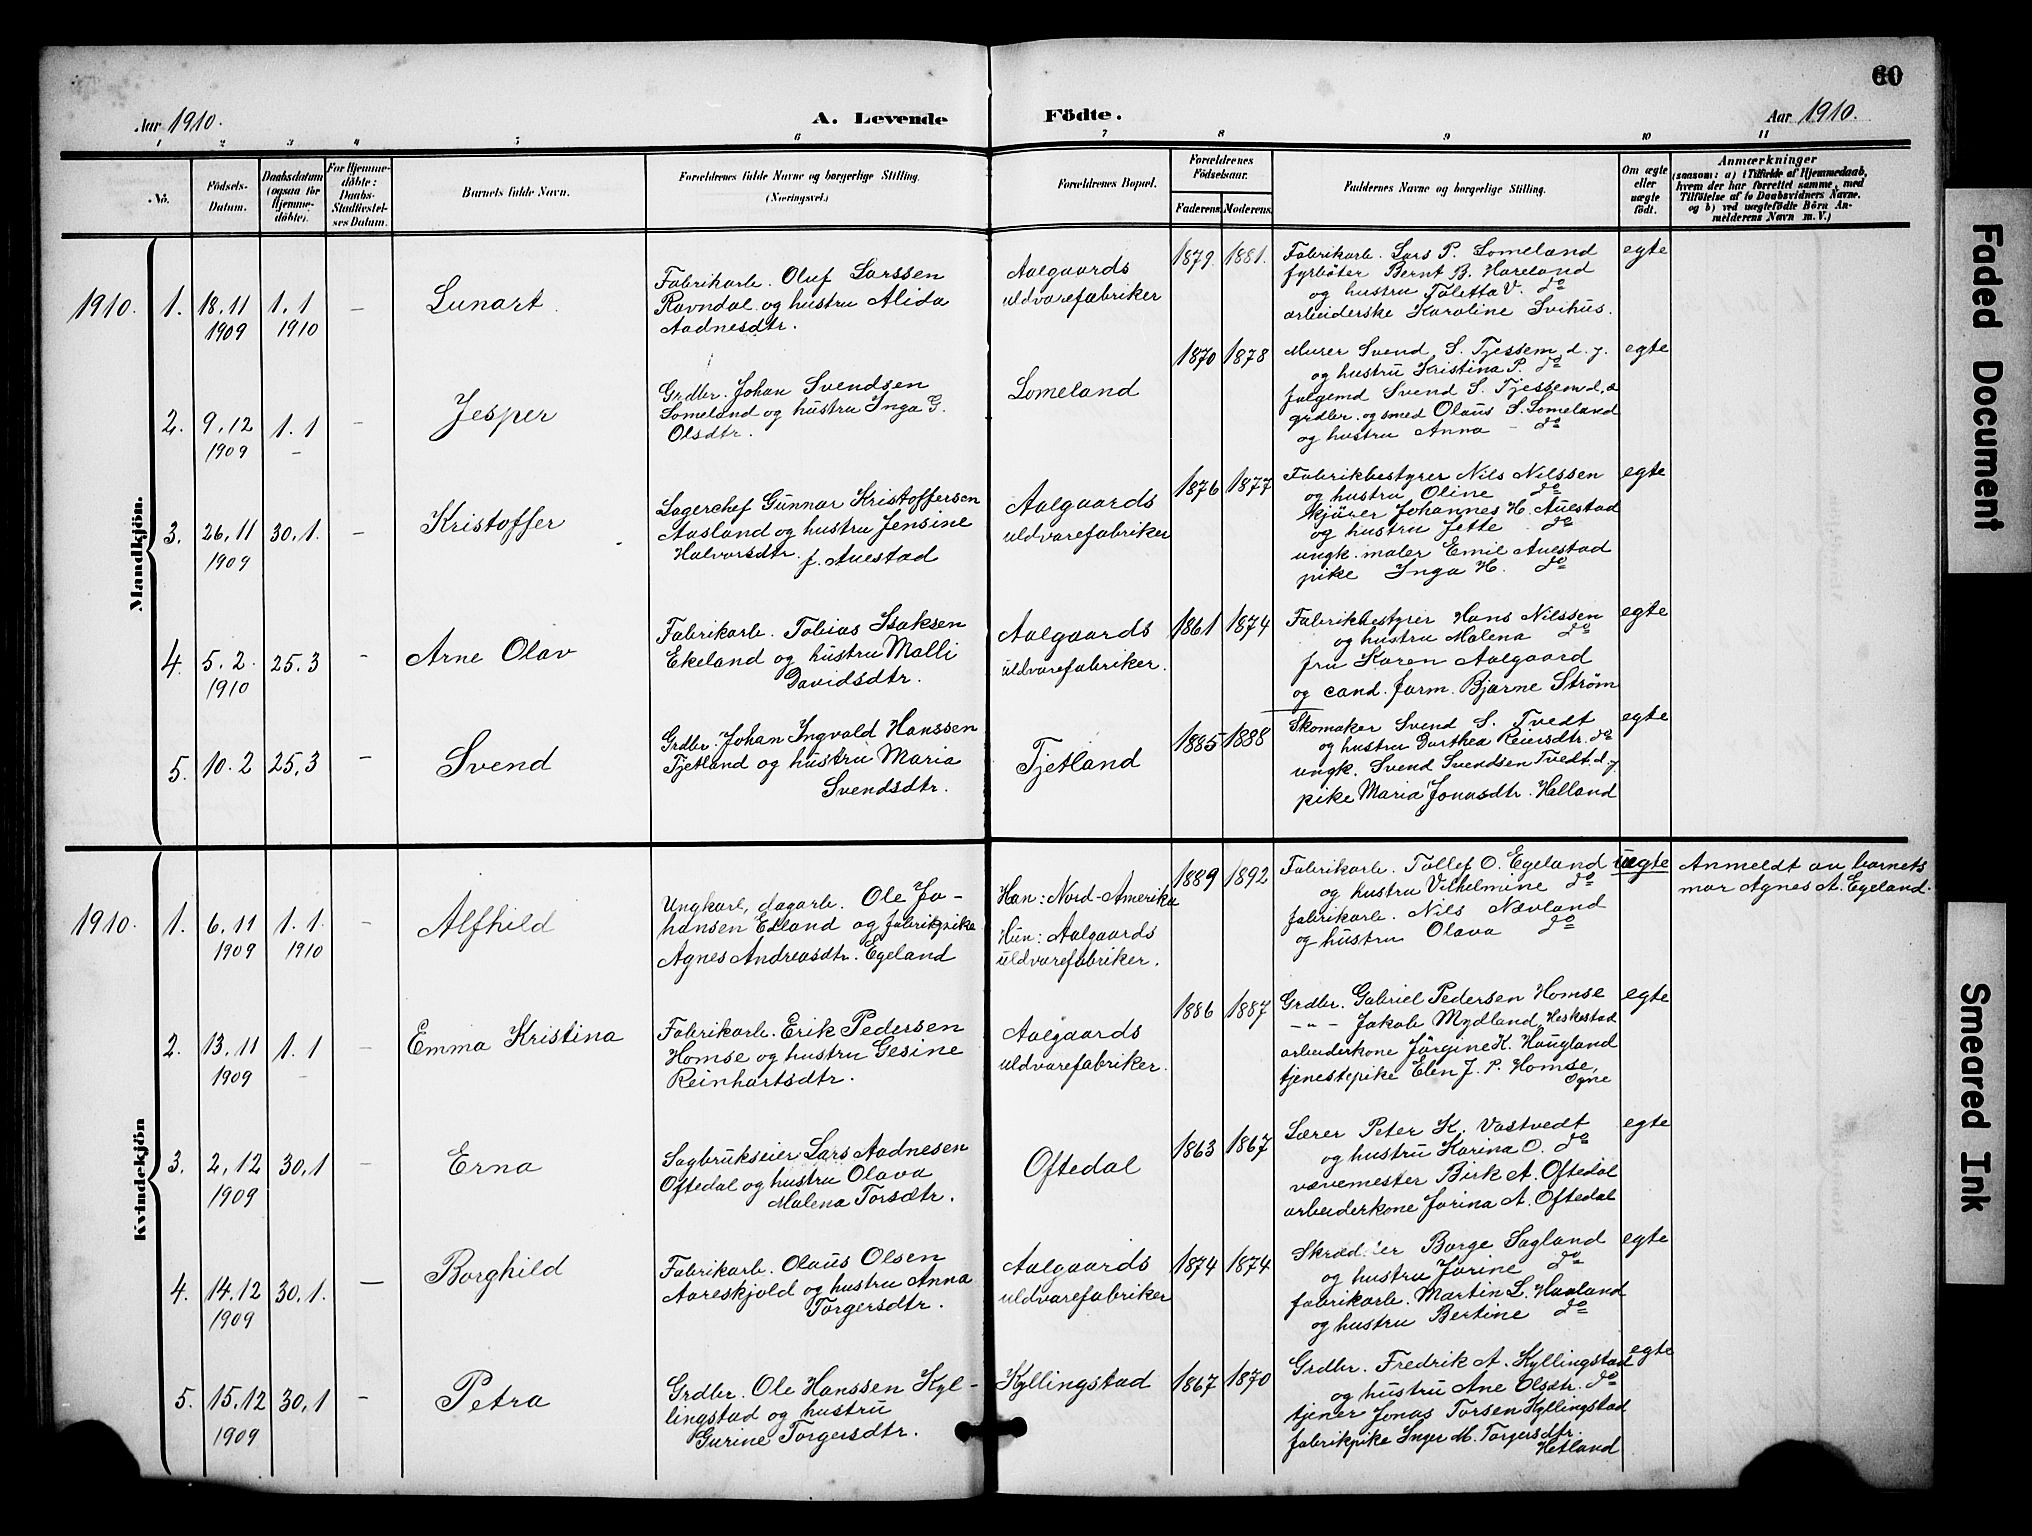 60
Aar 1910.
A. Levende
Födte.
Aar 1910.
1 2 3 4 5 6 7 8 9 10 11
No.
Födsels-Datum.
Daabsdatum (ogsaa for Hjemme-döbte).
For Hjemme-döbte: Daabs-Stadfæstel-ses Datum.
Barnets fulde Navn.
Forældrenes fulde Navne og borgerlige Stilling.
(Næringsvei.)
Forældrenes Bopæl.
Forældrenes Födselsaar.
Faderens. Moderens.
Faddernes Navne og borgerlige Stilling.
Om ægte eller uægte födt.
Anmærkninger
(saasom: a) i Tilfælde af Hjemmedaab,
hvem der har forrettet samme, med
Tilföielse af to Daabsvidners Navne.
og b) ved uægtefödte Börn An-
melderens Navn m. V.)
Mandkjön.
1910. 1. 18.11 1909 1.1 1910 – Lunart.
Fabrikarb. Oluf Larssen
Ravndal og hustru Alida
Aadnesdtr.
Aalgaards
uldvarefabriker
1879. 1881.
Fabrikarb. Lars P. Lomeland
fyrbøter Bernt B. Hareland
og hustru Taletta V. do
arbeiderske Karoline Svihus.
egte
2. 9.12 1909 1.1 – – Jesper
Grdbr. Johan Svendsen
Lomeland og hustru Inga G.
Olsdtr.
Lomeland
1870 1878
Murer Svend S. Tjessem d. y.
og hustru Kristina P. do
folgemd Svend S. Tjessem d. æ
grdbr. og smed Olaus S. Lomeland
og hustru Anna – do
egte
3. 26.11 1909 30.1. – Kristoffer
Lagerchef Gunnar Kristoffersen
Aasland og hustru Jensine
Halvorsdtr. f. Auestad
Aalgaards
uldvarefabriker
1876 1877
Fabrikbestyrer Nils Nilssen
og hustru Oline do
kjører Johannes H. Auestad
og hustru Jette do
ungk. maler Emil Auestad
pike Inga H. do
egte
4. 5.2. 1910 25.3 – Arne Olav
Fabrikarb. Tobias Isaksen
Ekeland og hustru Malli
Davidsdtr.
Aalgaards
uldvarefabriker.
1861 1874
Fabrikbestyrer Hans Nilssen
og hustru Malena do
fru Karen Aalgaard
og cand. farm. Bjarne Strøm
egte
5. 10.2 25.3 – Svend
Grdbr. Johan Ingvald Hanssen
Tjetland og hustru Maria
Svendsdtr.
Tjetland
1885 1888
Skomaker Svend S. Tvedt
og hustru Dorthea Reinsdtr. do
ungk. Svend Svendsen Tvedt d. y
pike Maria Jonasdtr. Helland
egte
Kvindekjön
1910. 1. 6.11 1909 1.1. 1910 – Alfhild
Ungkarl, dagarb. Ole Jo-
hansen Edland og fabrikpike
Agnes Andreasdtr. Egeland
Han: Nord-Amerika
Hun: Aalgaards
uldvarefabriker.
1889 1892
Fabrikarb. Tollef O. Egeland
og hustru Vilhelmine do
fabrikarb. Nils Nævland
og hustru Olava do
uegte
Anmeldt av barnets
mor Agnes A. Egeland.
2. 13.11 1909 1.1 – – Emma Kristina
Fabrikarb. Erik Pedersen
Homse og hustru Gesine
Reinhartsdtr.
Aalgaards
uldvarefabriker.
1886 1887
Grdbr. Gabriel Pedersen Homse
–"– Jakob Mydland, Heskestad
arbeiderkone Jørgine K. Haugland
tjenestepike Elen J. P. Homse,
Ogne
egte
3. 2.12 1909 30.1 – Erna
Sagbrukseier Lars Aadnesen
Oftedal og hustru Olava
Malena Torsdtr.
Oftedal
1863 1867
Lærer Peter K. Vastvedt
og hustru Karina O. do
vævemester Birk A. Oftedal
arbeiderkone Jorina A. Oftedal
egte
4. 14.12 1909 30.1. – Borghild
Fabrikarb. Olaus Olsen
Aareskjold og hustru Anna
Torgersdtr.
Aalgaards
uldvarefabriker
1874 1874
Skrædder Borge Sagland
og hustru Jorine do
fabrikarb. Martin L. Haaland
og hustru Bertine do
egte
5. 15.12 1909 30.1 – Petra
Grdbr. Ole Hanssen Kyl-
lingstad og hustru
Gurine Torgersdtr.
Kyllingstad
1867 1870
Grdbr. Fredrik A. Kyllingstad
og hustru Ane Olsdtr. do
tjener Jonas Torsen Kyllingstad
fabrikpike Inger M. Torgersdtr.
Hetland
egte
Faded Document
Smeared Ink